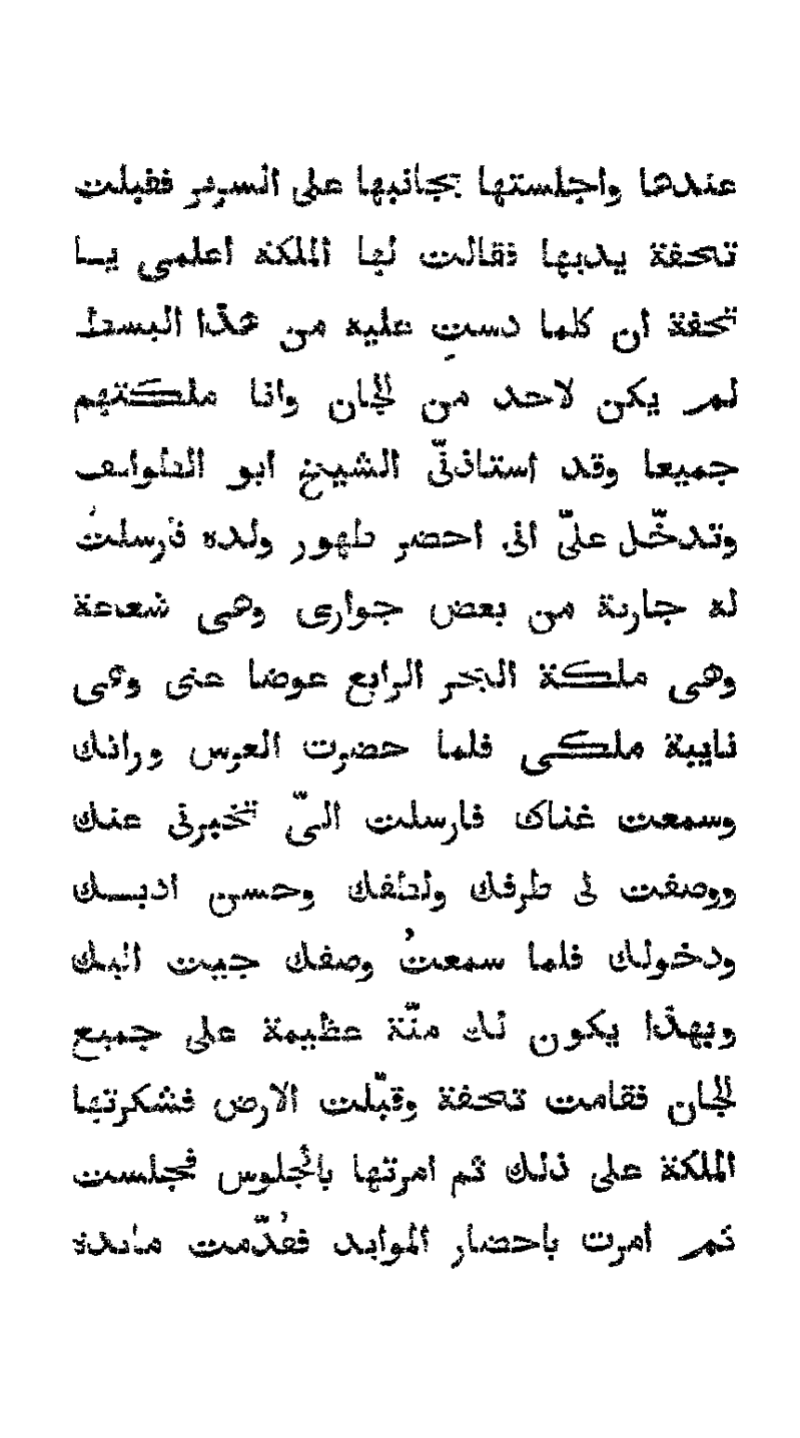 عندها واجلستها بجانبها على السرير فقبلت
تحفة يديها فقالت لها الملكة اعلمى يا
تحفة ان كلما دستِ عليه من هذا البسط
لم يكن لاحد من الجان وانا ملكتهم
جميعا وقد استاذنّى الشيخ ابو الطوايف
وتدخّل علىّ انى احضر طهور ولده فارسلتُ
له جارية من بعض جوارى وهى شعاعة
وهى ملكة البحر الرابع عوضا عنى وهى
نايبة ملكى فلما حضرت العرس وراتك
وسمعت غناك فارسلت الىّ تخبرنى عنك
ووصفت لى ظرفك ولطفك وحسن ادبك
ودخولك فلما سمعتُ وصفك جيت اليك
وبهذا يكون لك منّة عظيمة على جميع
الجان فقامت تحفة وقبّلت الارض فشكرتها
الملكة على ذلك ثم امرتها بالجلوس فجلست
ثم امرت باحضار الموايد فقُدّمت مايدة